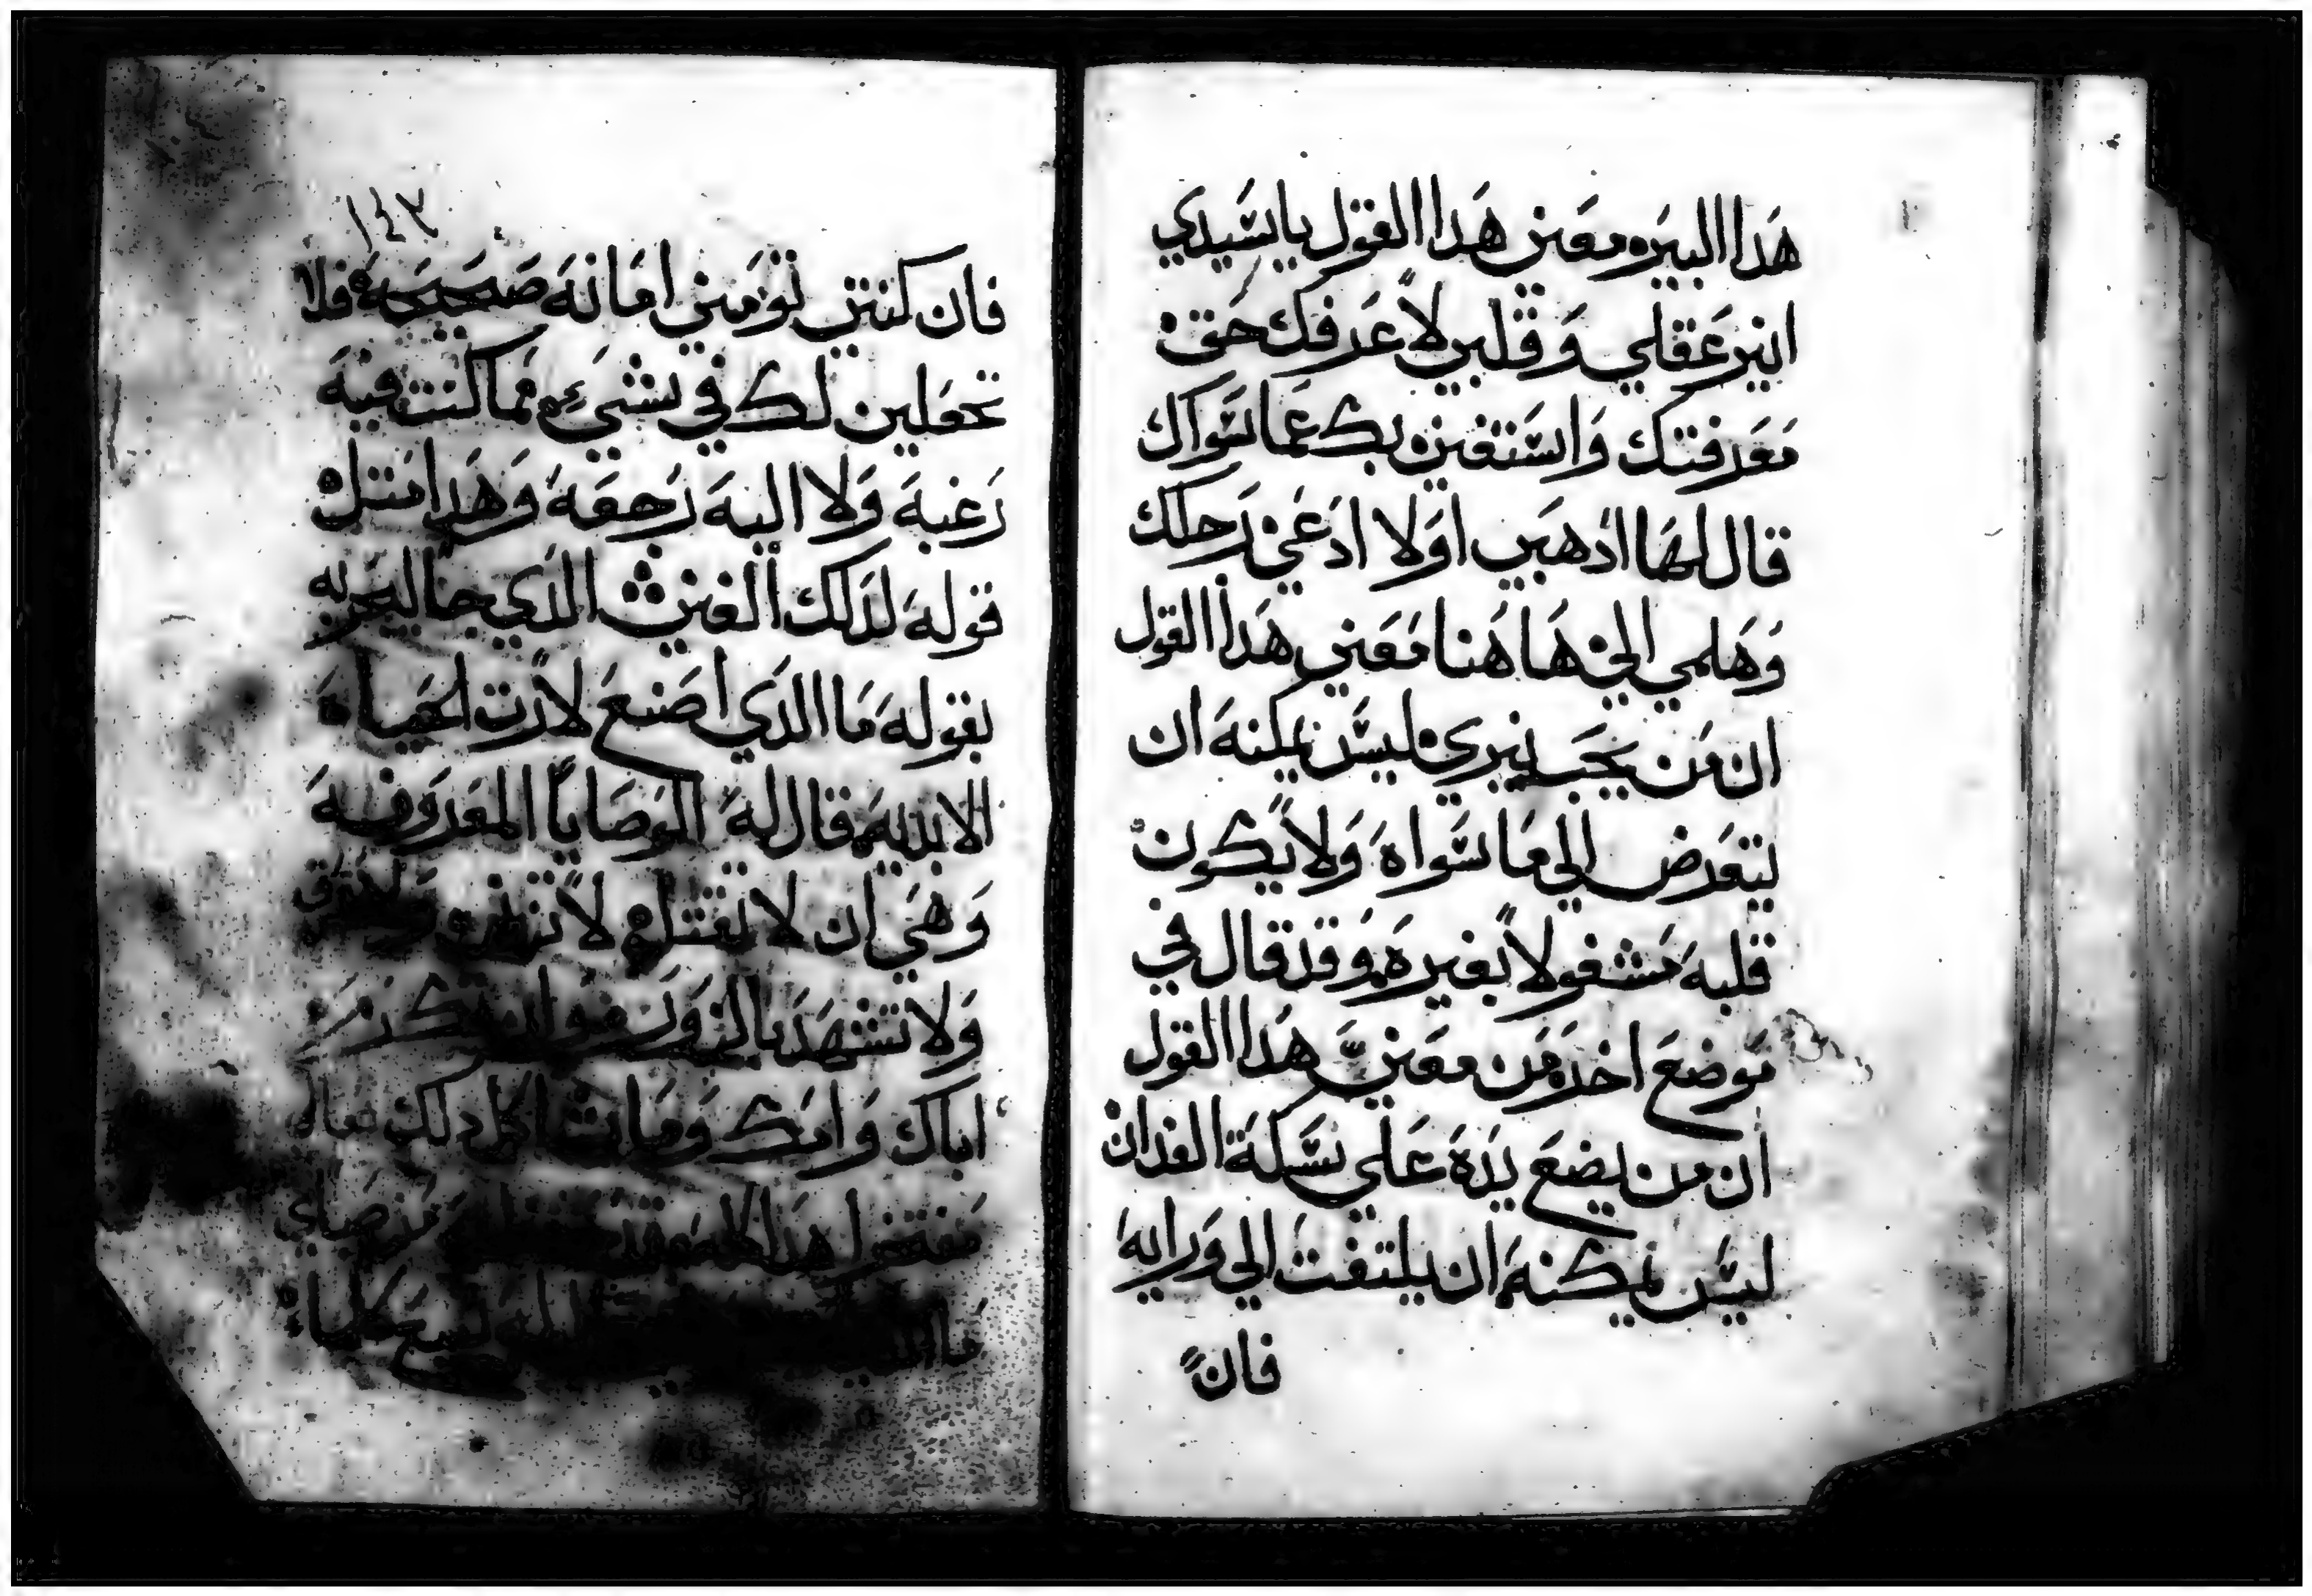 هدا البيره معني هدا القول يا سيدي
انير عقلي وقلبي لاعرفك حق
معرفتك واستغني بك عما سواك
قال لها ادهبي اولا ادعي رجلك
وهلمي الي هاهنا معني هدا القول
ان من يحب نيري ليس يمكنه ان
يتعرض الي ما سواه ولا يكون
قلبه مشغولا بغيره وقد قال في
موضع اخر من معني هدا القول
ان من يضع يده علي سكة الفدان
ليس يمكنه ان يلتفت الي ورايه
فان
١٤٣
فان كنتي تومني امانه صحيحه فلا
تجعلين لك في شيء مما كنت فيه
رغبة ولا اليه رجعه وهدا متل
قوله لدلك الغني الدي جا اليه
بقوله ما الدي اصنع لارت الحياه
الابديه فقال له الوصايا المعروفه
وهي ان لا تقتل لا تزني ولا تسرق
ولا تشهد بالزور وان تكرم
اباك وامك وما دلك فقال
هدا من صباي